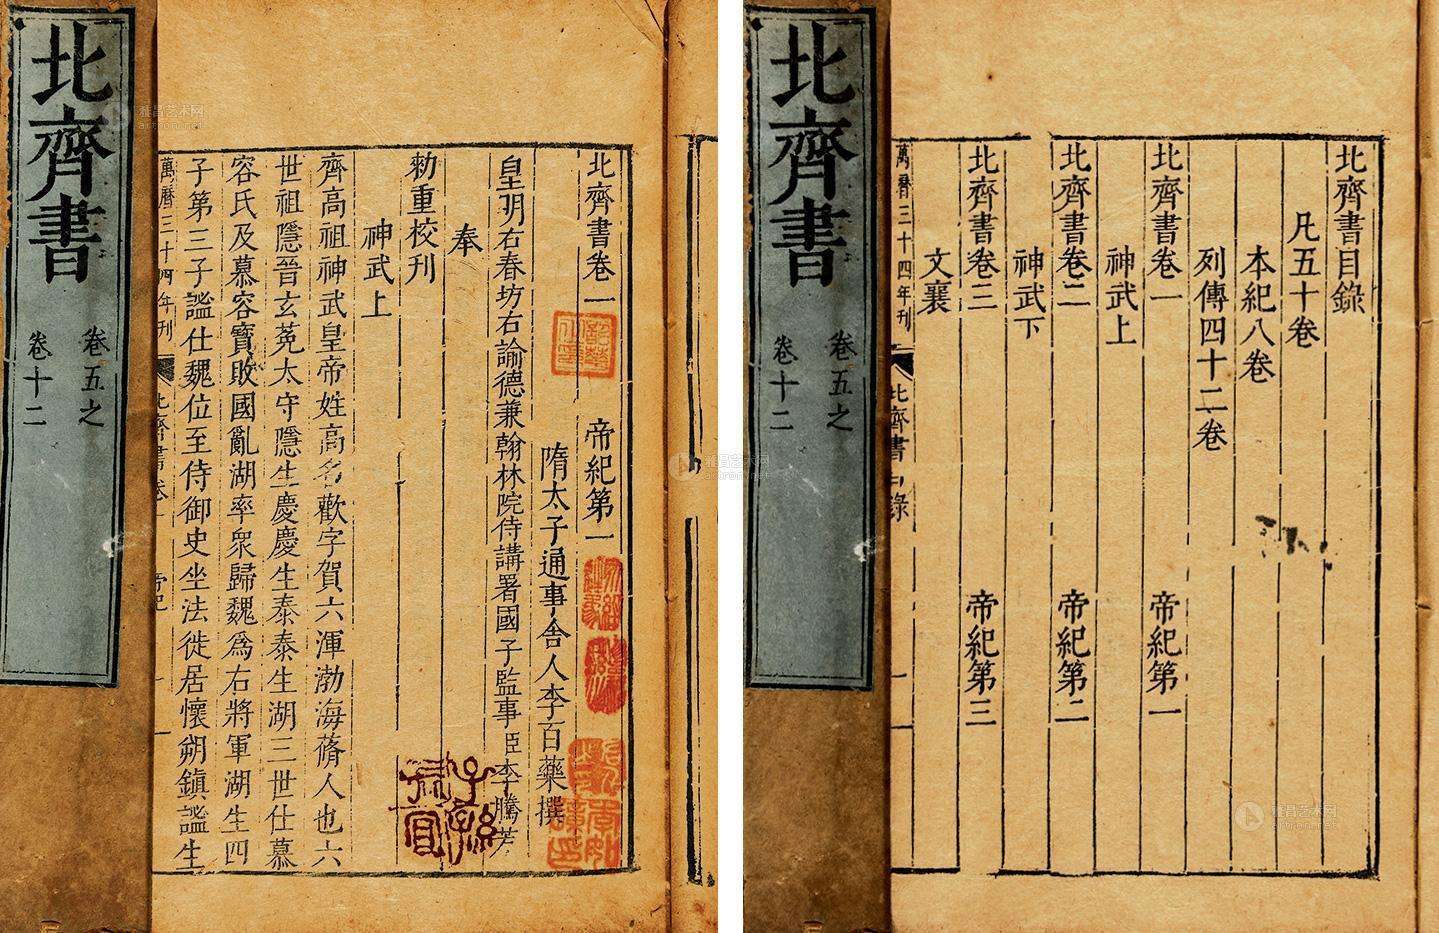 北齊書
卷五之
卷十二
北齊書卷一 帝紀第一
隋太子通事舍人李百藥撰
皇明右春坊右諭德兼翰林院侍講署國子監事臣李騰芳
奉
勑重校刊
神武上
齊高祖神武皇帝姓高名歡字賀六渾渤海蓨人也六
世祖隱晉玄菟太守隱生慶慶生泰泰生湖三世仕慕
容氏及慕容寶敗國亂湖率衆歸魏爲右將軍湖生四
子第三子謐仕魏位至侍御史坐法徙居懷朔鎮謐生
萬曆三十四年刊
北齊書卷一 帝紀 一
雅昌艺术网
artron.net
北齊書
卷五之
卷十二
北齊書目錄
凡五十卷
本紀八卷
列傳四十二卷
北齊書卷一 帝紀第一
神武上
北齊書卷二 帝紀第二
神武下
北齊書卷三 帝紀第三
文襄
萬曆三十四年刊
北齊書目錄 一
雅昌艺术网
artron.net
雅昌艺术网
artron.net